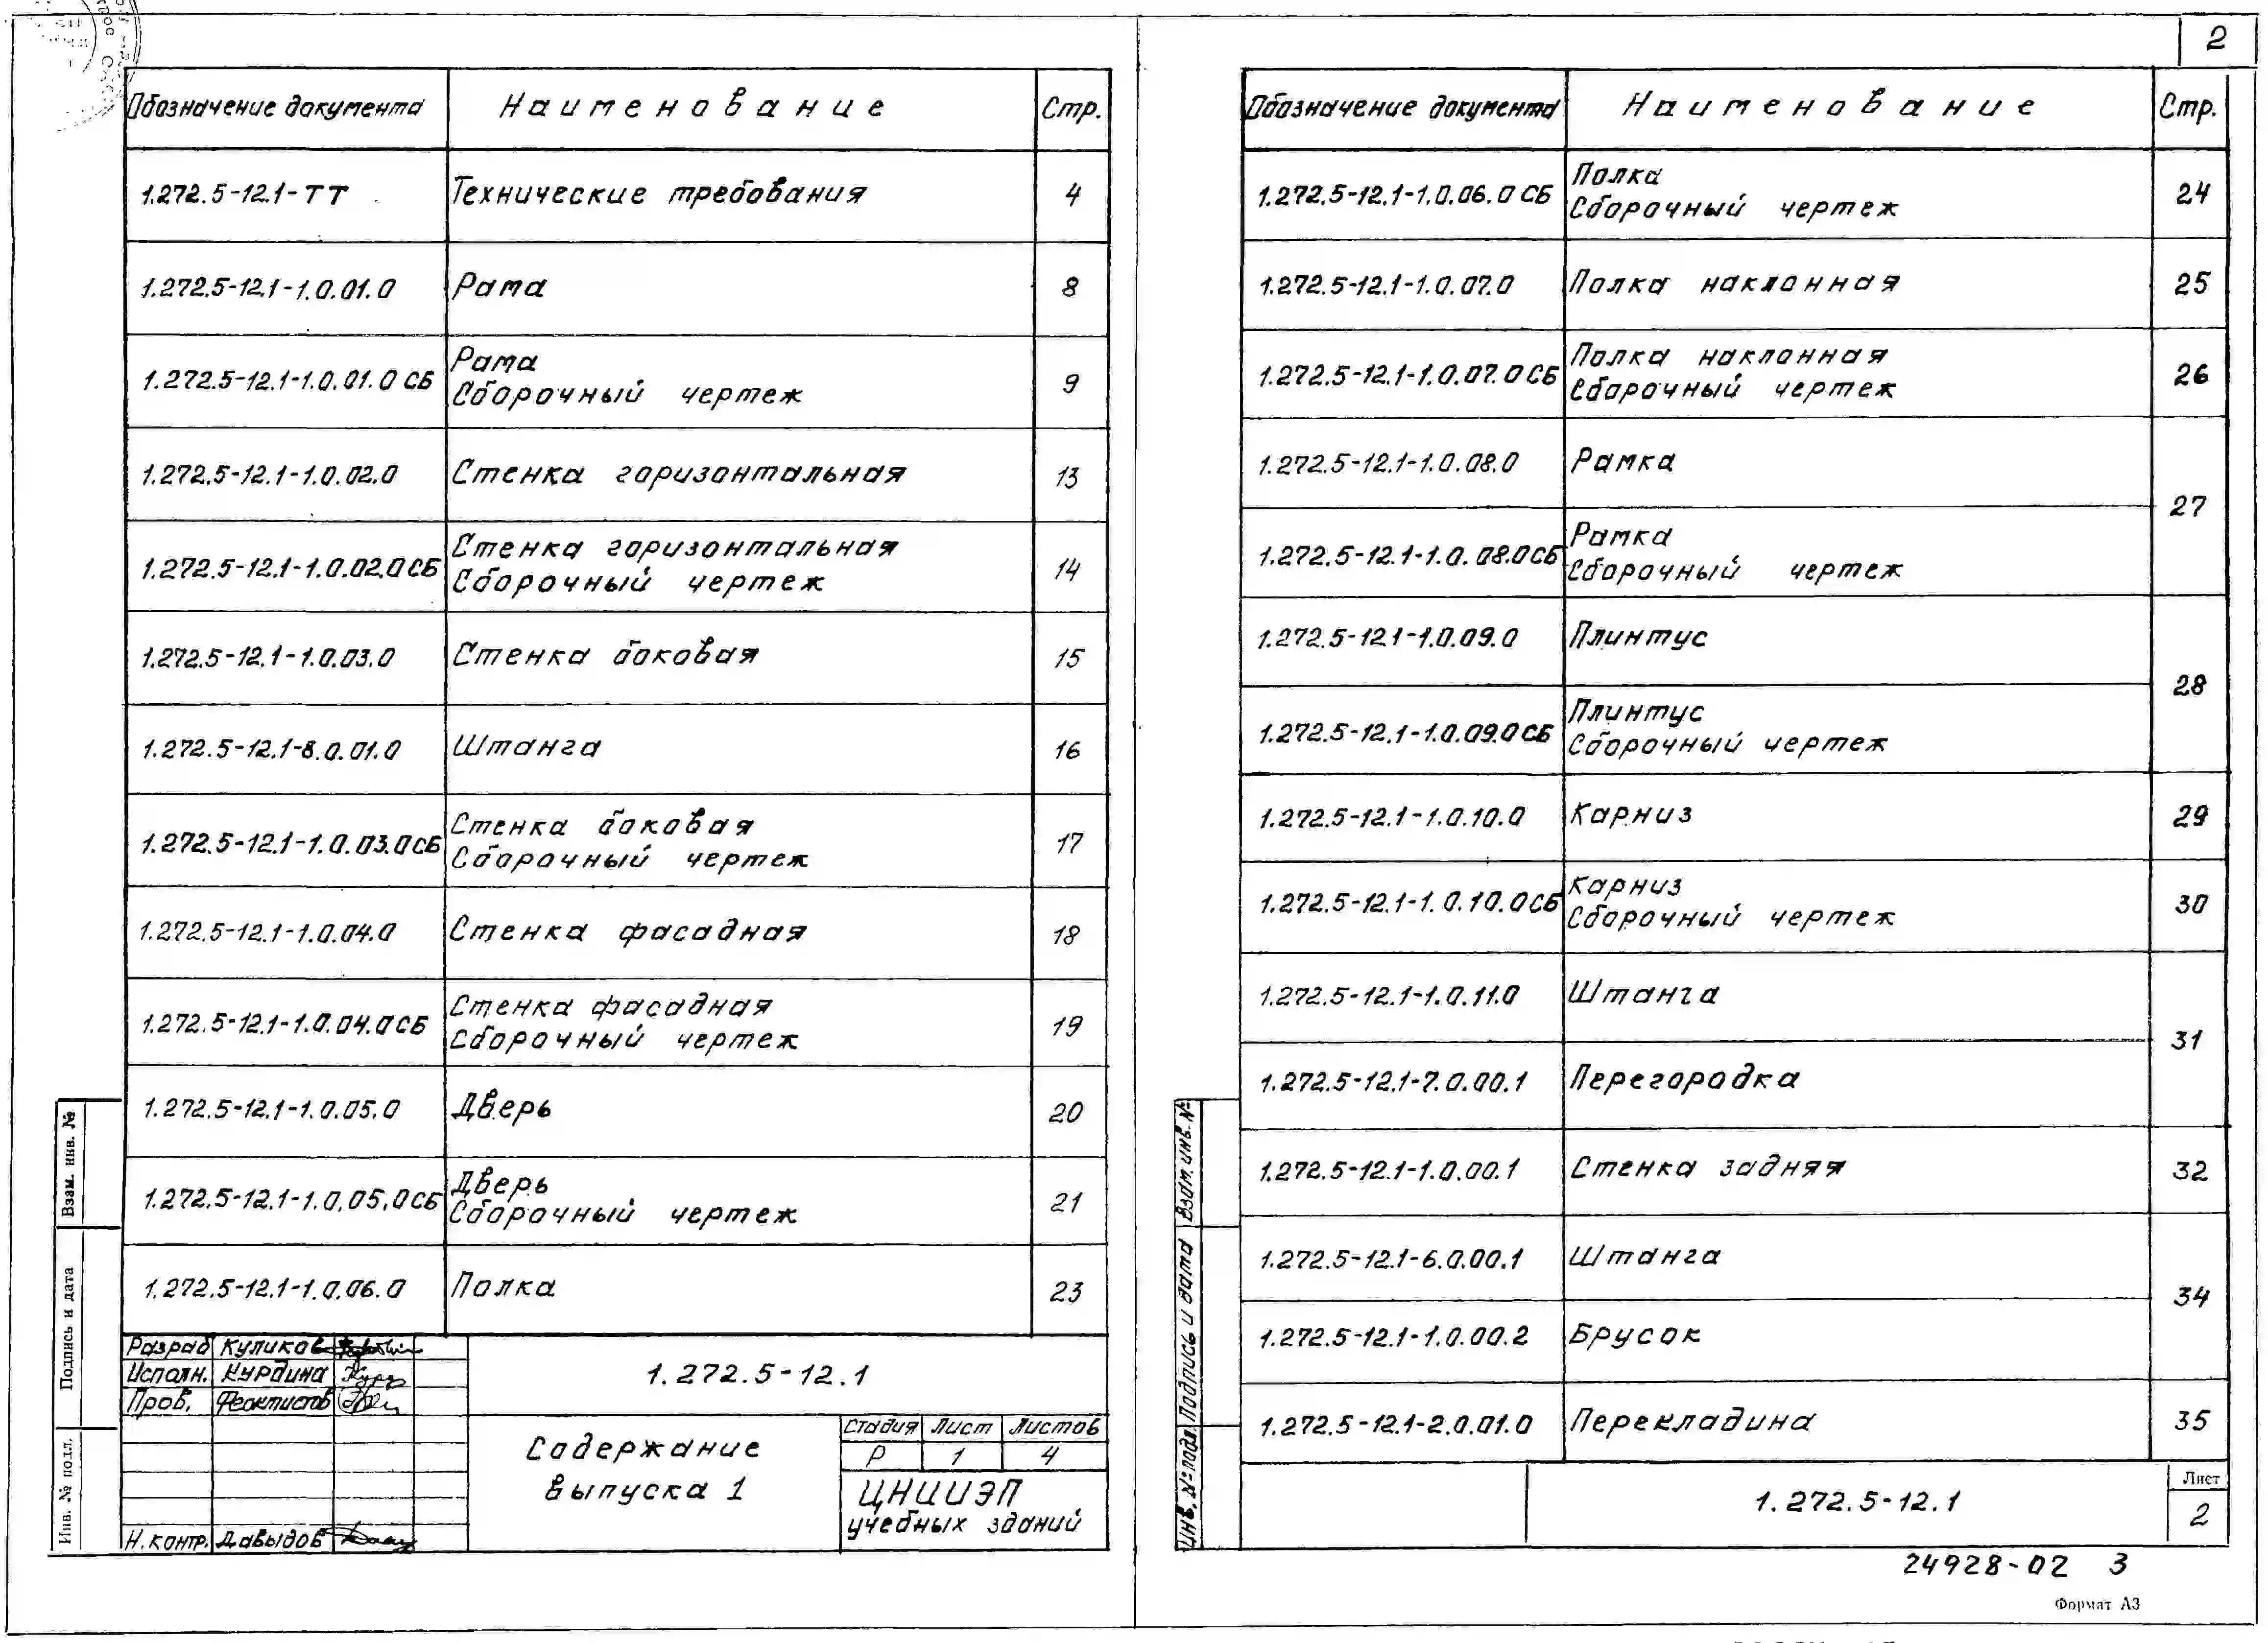 2
Обозначение документа Наименование Стр.
1.272.5-12.1-ТТ Технические требования 4
1.272.5-12.1-1.0.01.0 Рама 8
1.272.5-12.1-1.0.01.0 СБ Рама
Сборочный чертеж 9
1.272.5-12.1-1.0.02.0 Стенка горизонтальная 13
1.272.5-12.1-1.0.02.0 СБ Стенка горизонтальная
Сборочный чертеж 14
1.272.5-12.1-1.0.03.0 Стенка боковая 15
1.272.5-12.1-8.0.01.0 Штанга 16
1.272.5-12.1-1.0.03.0 СБ Стенка боковая
Сборочный чертеж 17
1.272.5-12.1-1.0.04.0 Стенка фасадная 18
1.272.5-12.1-1.0.04.0 СБ Стенка фасадная
Сборочный чертеж 19
1.272.5-12.1-1.0.05.0 Дверь 20
1.272.5-12.1-1.0.05.0 СБ Дверь
Сборочный чертеж 21
1.272.5-12.1-1.0.06.0 Полка 23
Разраб Куликов
Исполн. Курдина
Пров. Феоктистов
Н.контр. Давыдов
1.272.5-12.1
Содержание
выпуска 1
Стадия Лист Листов
Р 1 4
ЦНИИЭП
учебных зданий
Взам. инв. №
Подпись и дата
Инв. № подл.
Обозначение документа Наименование Стр.
1.272.5-12.1-1.0.06.0 СБ Полка
Сборочный чертеж 24
1.272.5-12.1-1.0.07.0 Полка наклонная 25
1.272.5-12.1-1.0.07.0 СБ Полка наклонная
Сборочный чертеж 26
1.272.5-12.1-1.0.08.0 Рамка
27
1.272.5-12.1-1.0.08.0 СБ Рамка
Сборочный чертеж
1.272.5-12.1-1.0.09.0 Плинтус
28
1.272.5-12.1-1.0.09.0 СБ Плинтус
Сборочный чертеж
1.272.5-12.1-1.0.10.0 Карниз 29
1.272.5-12.1-1.0.10.0 СБ Карниз
Сборочный чертеж 30
1.272.5-12.1-1.0.11.0 Штанга
31
1.272.5-12.1-7.0.00.1 Перегородка
1.272.5-12.1-1.0.00.1 Стенка задняя 32
1.272.5-12.1-6.0.00.1 Штанга
34
1.272.5-12.1-1.0.00.2 Брусок
1.272.5-12.1-2.0.01.0 Перекладина 35
1.272.5-12.1
Лист
2
Взам. инв. №
Подпись и дата
Инв. № подл.
24928-02 3
Формат А3